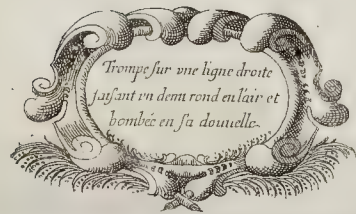 Trompe sur vne ligne droite
faisant vn demi rond en l'air et
bombée en sa douuelle